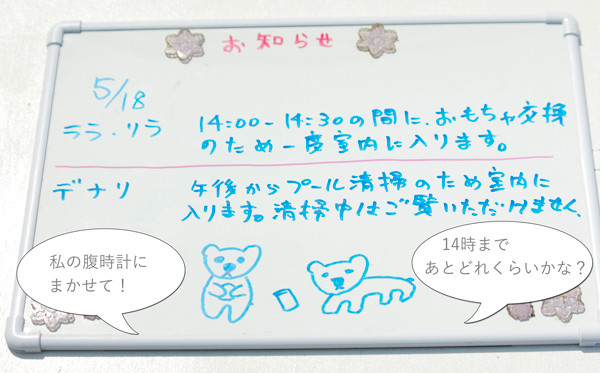 お知らせ
5/18
ララ・リラ
14:00-14:30の間に、おもちゃ交換
のため一度室内に入ります。
デナリ
午後からプール清掃のため室内に
入ります。清掃中はご覧いただけません。
私の腹時計に
まかせて!
14時まで
あとどれくらいかな?